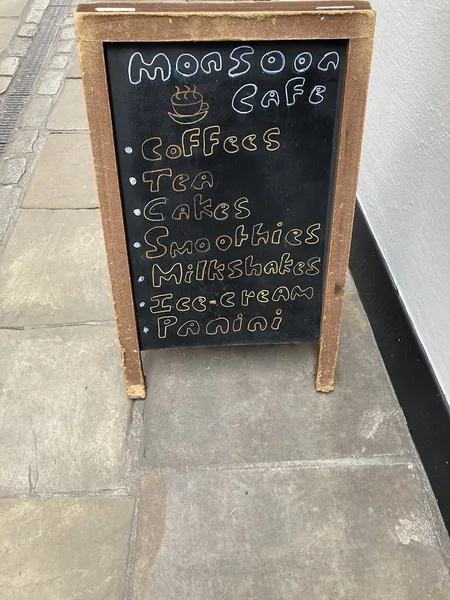 Monsoon
Cafe
Coffees
Tea
Cakes
Smoothies
Milkshakes
Ice-cream
Panini